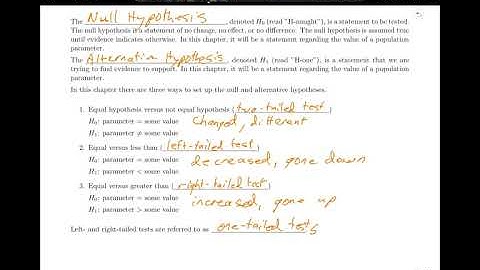 The Null Hypothesis, denoted H₀ (read "H-naught"), is a statement to be tested.
The null hypothesis is a statement of no change, no effect, or no difference. The null hypothesis is assumed true
until evidence indicates otherwise. In this chapter, it will be a statement regarding the value of a population
parameter.
The Alternative Hypothesis, denoted H₁ (read "H-one"), is a statement that we are
trying to find evidence to support. In this chapter, it will be a statement regarding the value of a population
parameter.
In this chapter there are three ways to set up the null and alternative hypotheses.
1. Equal hypothesis versus not equal hypothesis (two-tailed test)
H₀: parameter = some value changed, different
H₁: parameter ≠ some value
2. Equal versus less than (left-tailed test)
H₀: parameter = some value decreased, gone down
H₁: parameter < some value
3. Equal versus greater than (right-tailed test)
H₀: parameter = some value increased, gone up
H₁: parameter > some value
Left- and right-tailed tests are referred to as one-tailed tests